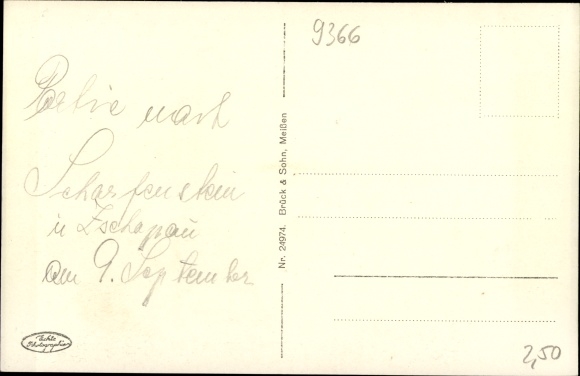 9366
nach
Scharfenstein
u Zschopau
am 9. September
Nr. 24974. Brück & Sohn, Meißen
Echte
Photographie
2,50